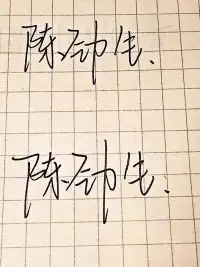 陈劲生.
陈劲生.